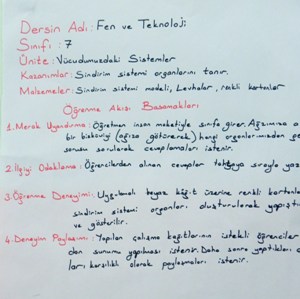 Dersin Adı: Fen ve Teknoloji
Sınıfı : 7
Ünite : Vücudumuzdaki Sistemler
Kazanımlar : Sindirim sistemi organlarını tanır.
Malzemeler: Sindirim sistemi modeli, Levhalar, renkli kartonlar
Öğrenme Akışı Basamakları
1.Merak Uyandırma: Öğretmen insan maketiyle sınıfa girer. Ağzımıza a
bir bisküviyi (ağıza götürerek) hangi organlarımızdan ge
sorusu sorularak cevaplamaları istenir.
2.İlgiyi Odaklama: Öğrencilerden alınan cevaplar tahtaya sırayla yaz
3.Öğrenme Deneyimi: Uygulamalı beyaz kağıt üzerine renkli kartonla
sindirim sistemi organları oluşturularak yapıştı
ve gösterilir.
4.Deneyim Paylaşımı: Yapılan çalışma kağıtlarının istekli öğrenciler
dan sunumu yapılması istenir. Daha sonra yaptıkları ç
ları karşılıklı olarak paylaşmaları istenir.